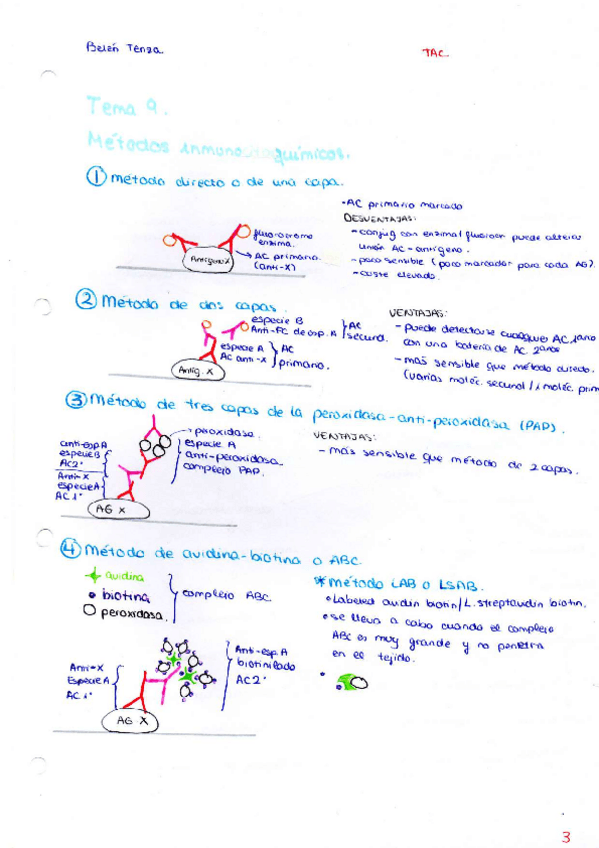 Belén Tenza
TAC
Tema 9.
Métodos inmunohistoquímicos.
① Método directo o de una capa.
fluorocromo
enzima.
AC primario
(anti-X)
Antígeno X
·AC primario marcado
DESVENTAJAS:
- conjug con enzima/fluorocr puede alterar
unión AC-antígeno.
- poco sensible (poco marcador para cada AG).
- coste elevado.
② Método de dos capas.
especie B
Anti-FC de esp. A
AC
secund.
especie A
Ac anti-X
AC
primario.
Antig. X
VENTAJAS:
- puede detectarse cualquier AC 1ario
con una batería de AC 2arios
- más sensible que método directo.
(varias moléc. secund / 1 moléc. prim
③ Método de tres capas de la peroxidasa-anti-peroxidasa (PAP).
peroxidasa.
especie A
anti-peroxidasa
complejo PAP.
anti-esp A
especie B
AC2°
Anti-X
especie A
AC 1°
AG X
VENTAJAS:
- más sensible que método de 2 capas.
④ Método de avidina-biotina o ABC
avidina
biotina
peroxidasa.
complejo ABC.
* Método LAB o LSAB.
• Labeled avidin biotin / L. streptavidin biotin.
• se lleva a cabo cuando el complejo
ABC es muy grande y no penetra
en el tejido.
Anti-X
Especie A
AC 1°
Anti-esp. A
biotinilado
AC2°
AG X
3